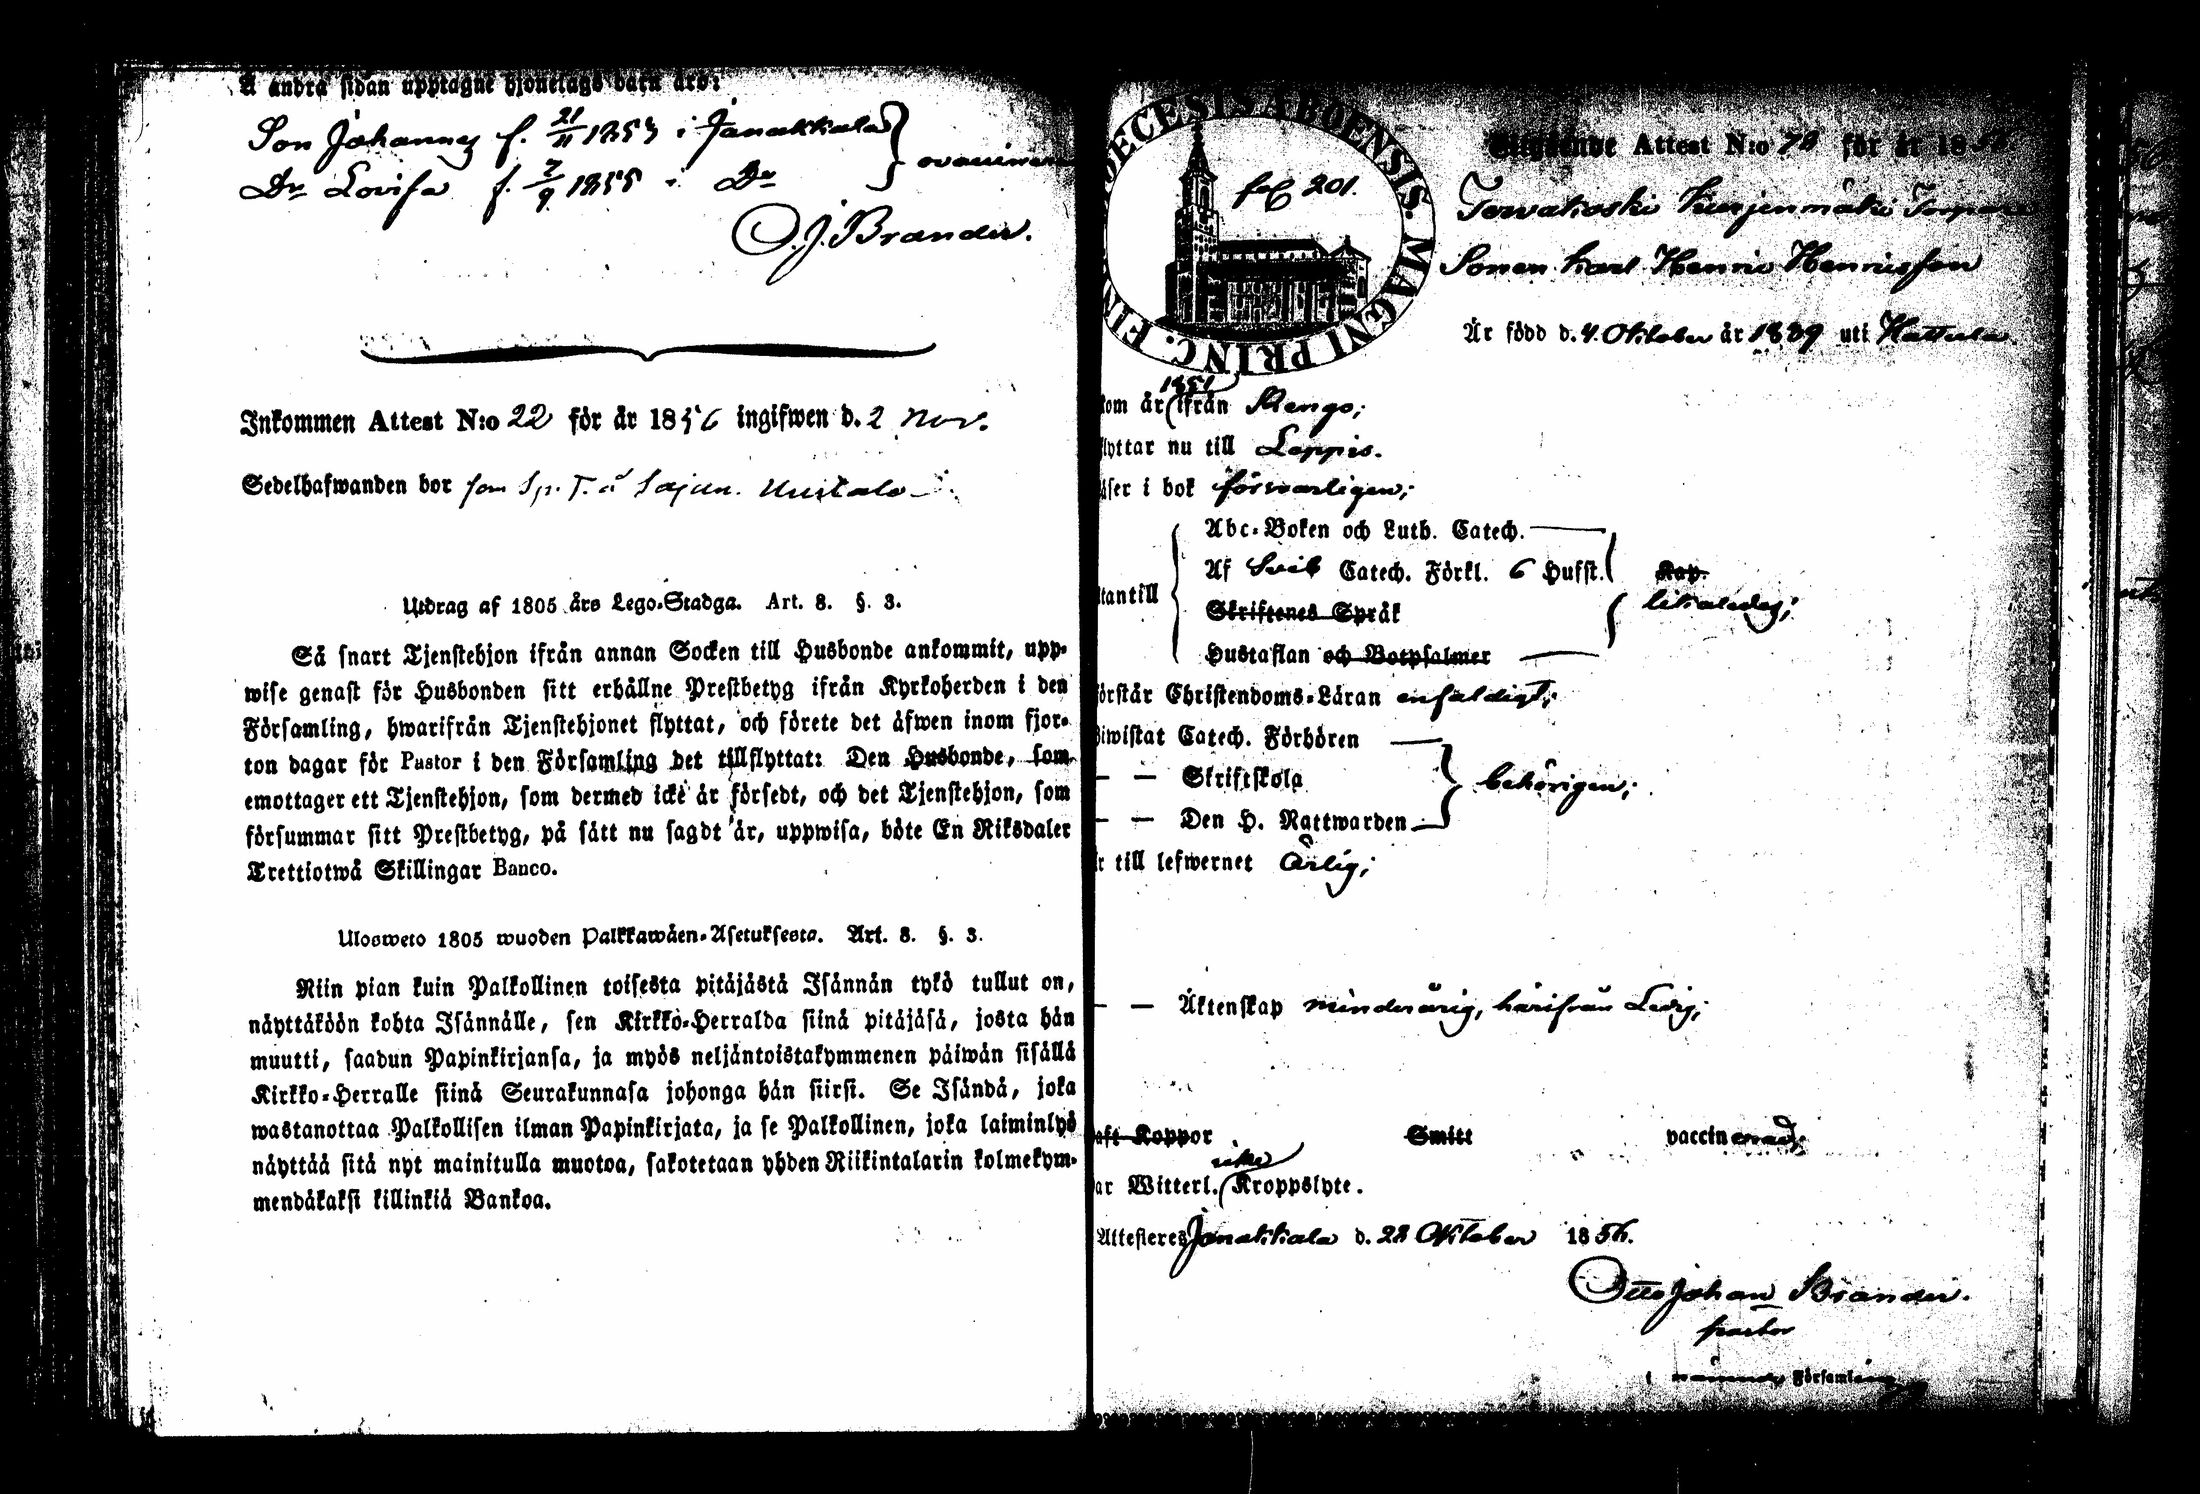 Å andra sidan upptagne hjonelags barn äro:
Son Johannes f. 21/11 1853 i Janakkala
Dr Lovisa f. 7/9 1855 i Do
O. J. Brander.
Inkommen Attest N:o 22 för år 1856 ingifwen d. 2 Nov.
Sedelhafwanden bor som Sp. T. å Sajun.
Utdrag af 1805 års Lego-Stadga. Art. 8. §. 3.
Så snart Tjenstehjon ifrån annan Socken till Husbonde ankommit, upp-
wise genast för Husbonden sitt erhållne Prestbetyg ifrån Kyrkoherden i den
Församling, hwarifrån Tjenstehjonet flyttat, och förete det äfwen inom fjor-
ton dagar för Pastor i den Församling det tillflyttat: Den Husbonde, som
emottager ett Tjenstehjon, som dermed icke är försedt, och det Tjenstehjon, som
försummar sitt Prestbetyg, på sätt nu sagdt är, uppwisa, böte En Riksdaler
Trettiotwå Skillingar Banco.
Ulosweto 1805 wuoden Palkkawäen-Asetuksesta. Art. 8. §. 3.
Niin pian kuin Palkollinen toisesta pitäjästä Isännän tykö tullut on,
näyttäköön kohta Isännälle, sen Kirkko-Herralda siinä pitäjäsä, josta hän
muutti, saadun Papinkirjansa, ja myös neljäntoistakymmenen päiwän sisällä
Kirkko-Herralle siinä Seurakunnasa johonga hän siirsi. Se Isändä, joka
wastanottaa Palkollisen ilman Papinkirjata, ja se Palkollinen, joka laiminlyö
näyttää sitä nyt mainitulla muotoa, sakotetaan yhden Riikintalarin kolmekym-
mendäkaksi killinkiä Bankoa.
DECESIS ABOENSIS. MAGNI PRINC. FIN
fol 201.
Utgående Attest N:o 78 för år 1856.
Terwakoski Kurjenmäki Torpare
Sonen Karl Henric Henricsson
Är född d. 4. Oktober år 1839 uti Hattula
kom år 1851 ifrån Rengo;
flyttar nu till Loppis.
läser i bok försvarligen;
Abc-Boken och Luth. Catech.
Af Sveb Catech. Förkl. 6 Hufst. Kap.
utantill Skriftenes Språk likaledes;
Hustaflan och Botpsalmer
förstår Christendoms-Läran enfaldigt;
Biwistat Catech. Förhören
— — Skriftskola behörigen;
— — Den H. Nattwarden
är till lefwernet Ärlig;
— — Äktenskap minderårig, härifrån Ledig;
haft Koppor Smitt vaccinerad;
har Witterl. icke Kroppslyte.
Attesteres Janakkala d. 28 Oktober 1856.
Otto Johan Brander.
pastor
i nämnde Församling